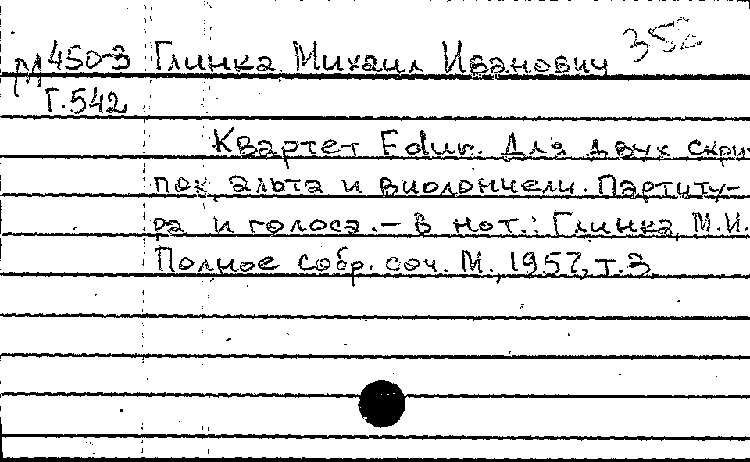 352
М 450-3 Глинка Михаил Иванович
Г.542
Квартет F dur. Для двух скри-
пок, альта и виолончели. Партиту-
ра и голоса. – В нот.: Глинка М.И.
Полное собр. соч. М., 1957, т. 3.